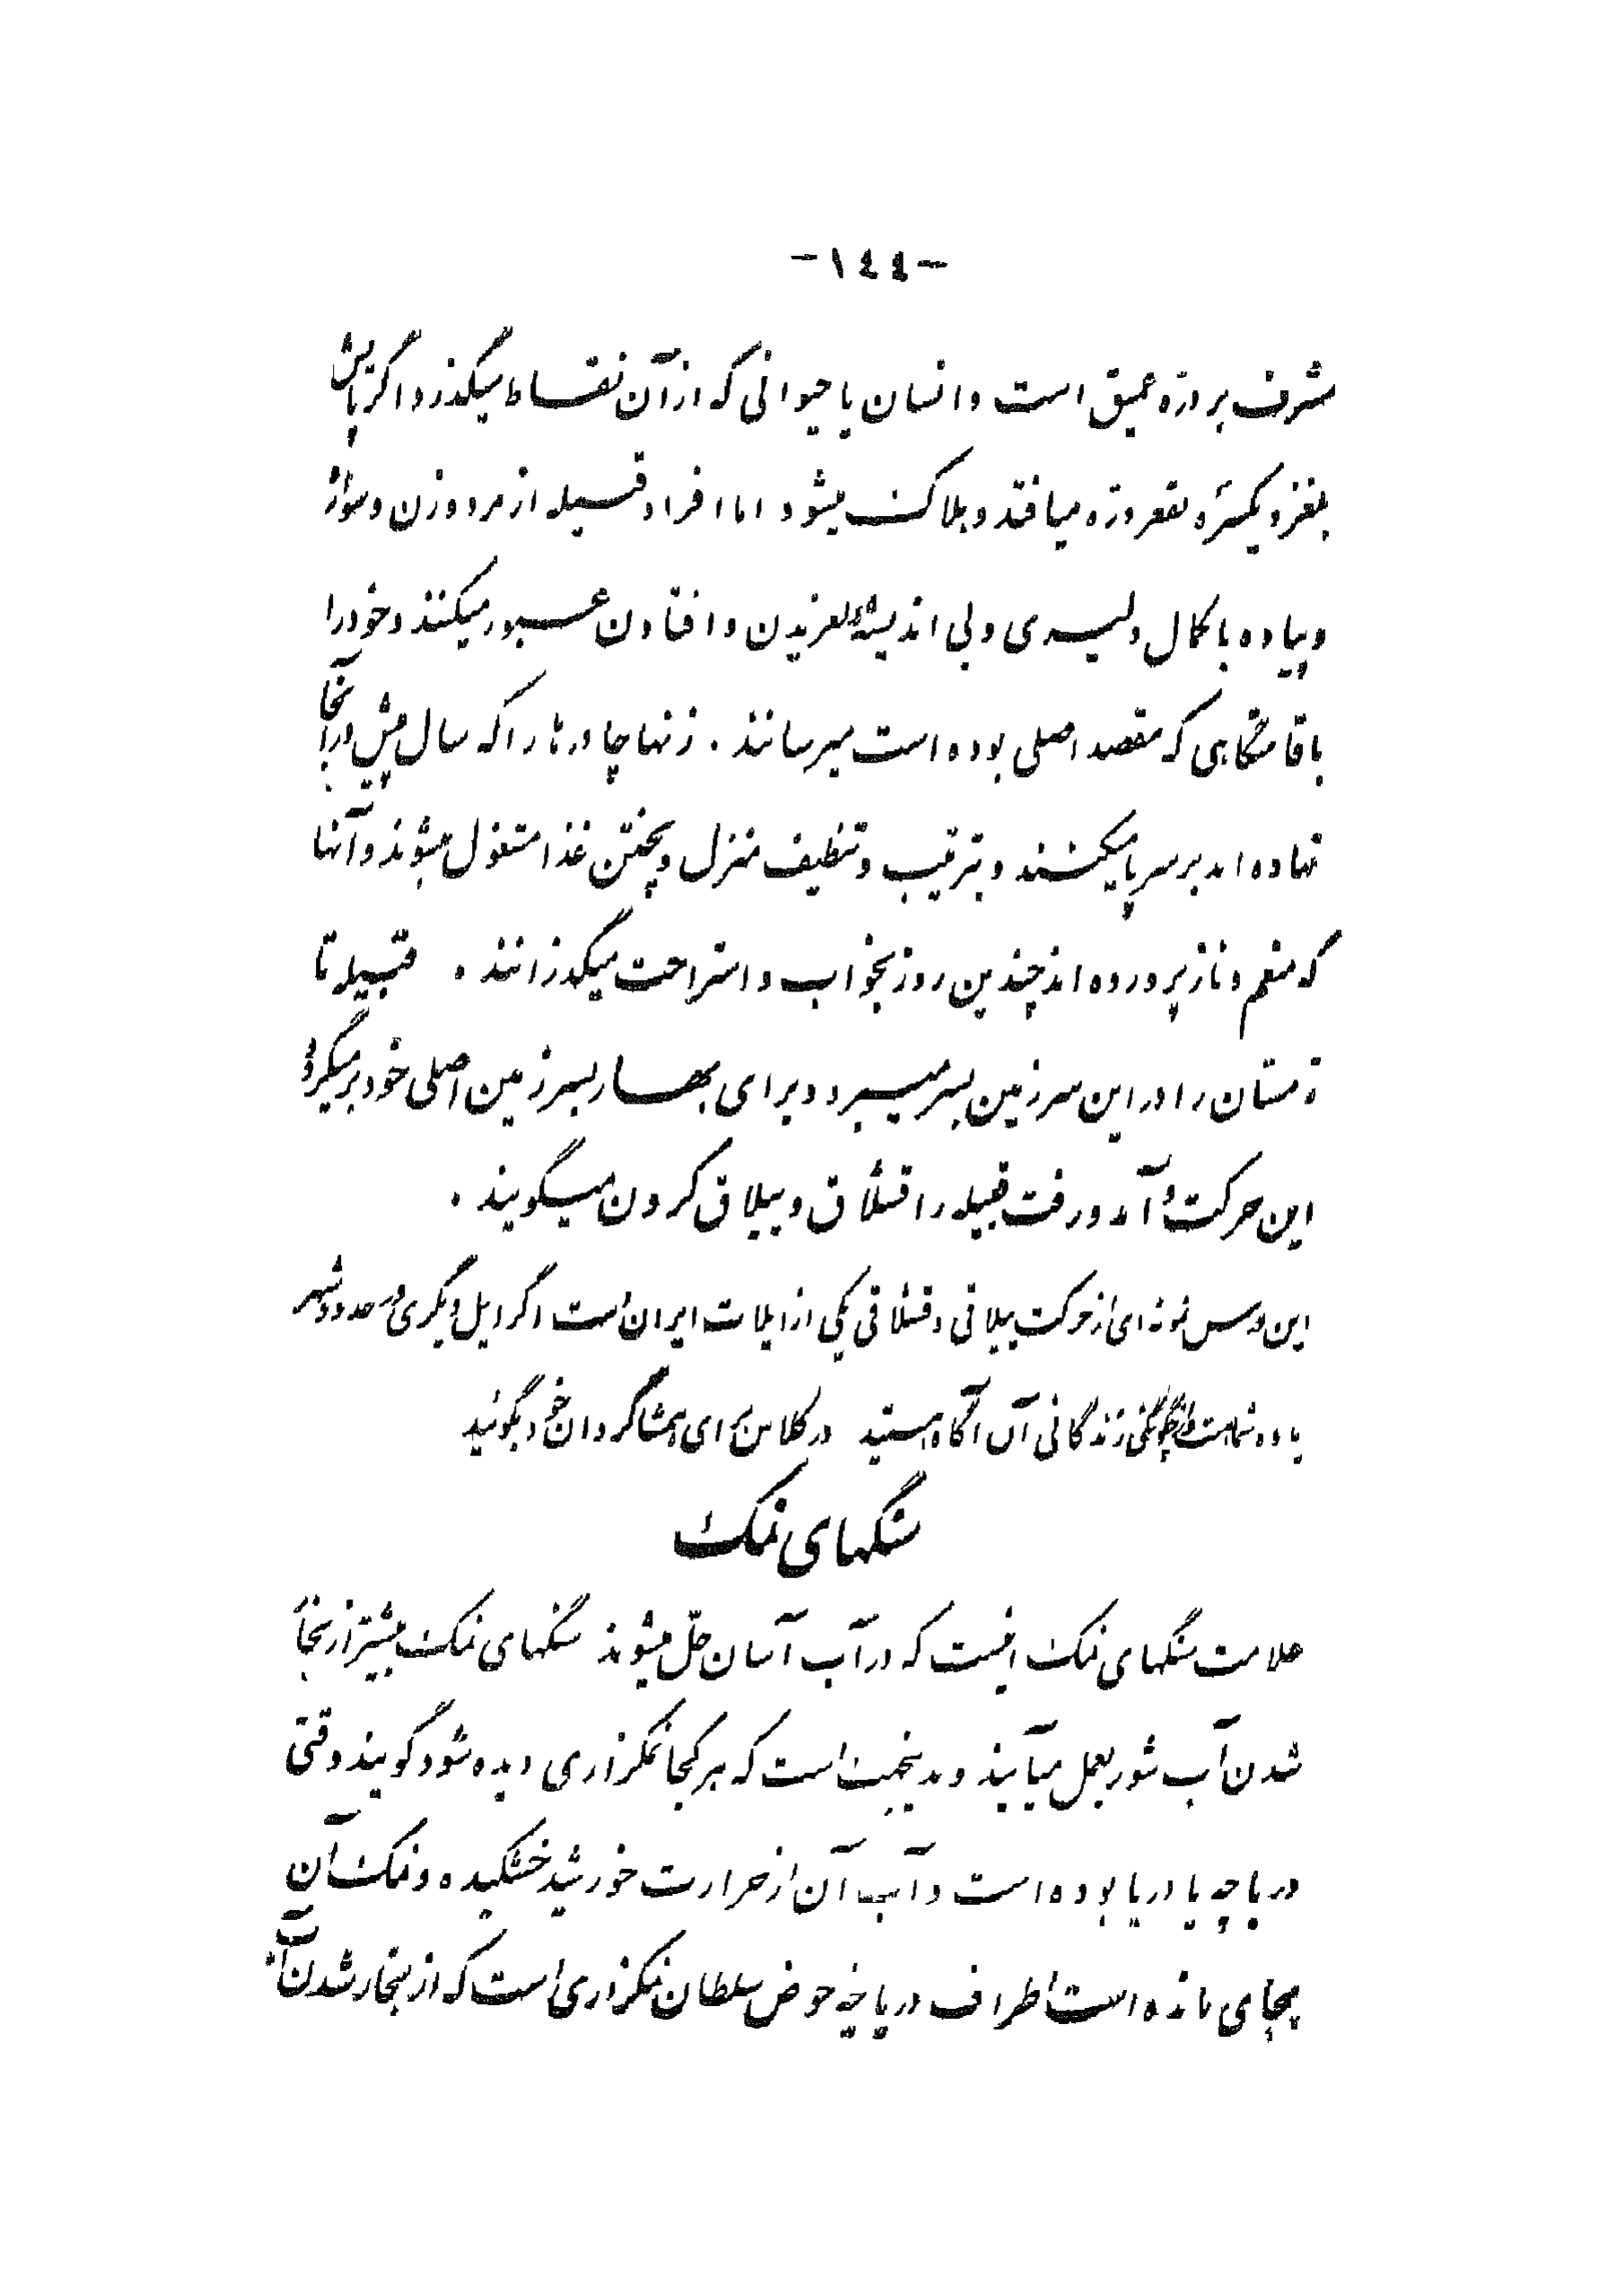 -١٤٤-
مشرف بر دره عمیق است و انسان یا حیوانی که از آن نقـاط میگذرد اگر پایش
بلغزد یکسره بقعر دره میافتد و هلاک میشود اما افراد قبیله از مرد و زن و سواره
و پیاده با کمال دلیری و بی اندیشهٔ لغزیدن و افتادن عبور میکنند و خود را
باقامتگاهی که مقصد اصلی بوده است میرسانند . زنها چادرها را که سال پیش در آنجا
نهاده اند بر سر پا میکنند و بترتیب و تنظیف منزل و پختن غذا مشغول میشوند و آنها
که منعم و ناز پرورده اند چندین روز بخواب و استراحت میگذرانند . قبیله تا
زمستان را در این سرزمین بسر میبرد و برای بهـار بسرزمین اصلی خود برمیگردد
این حرکت و آمد و رفت قبیله را قشلاق و ییلاق کردن میگویند .
این درس نمونه ای از حرکت ییلاقی و قشلاقی یکی از ایلات ایران است اگر ایل دیگری در حدود شهر
یا ده شما هست و از چگونگی زندگانی آن آگاه هستید در کلاس برای همشاگردان خود بگوئید
سنگهای نمک
علامت سنگهای نمک اینست که در آب آسان حلّ میشوند سنگهای نمک بیشتر از بخار
شدن آب شور بعمل میآیند و بدینجهت است که هر کجا نمکزاری دیده شود گویند وقتی
دریاچه یا دریا بوده است و آب آن از حرارت خورشید خشکیده و نمک آن
بجای مانده است اطراف دریاچه حوض سلطان نمکزاری است که از بخار شدن آب